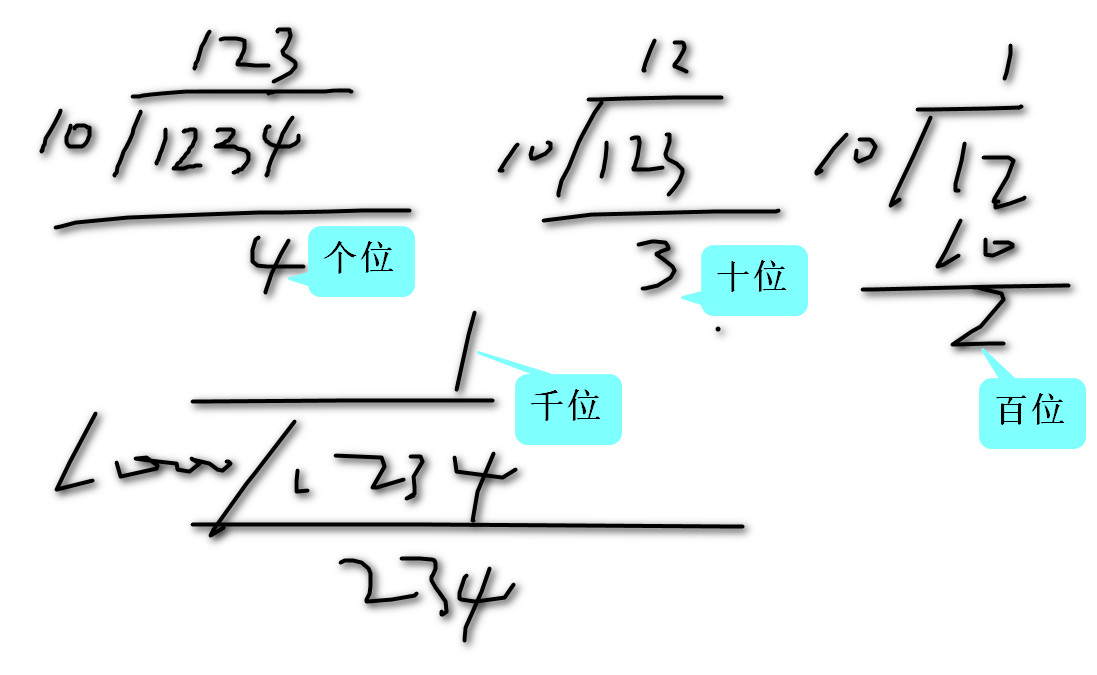 123
10 1234
4 个位
12
10 123
3 十位
1
10 12
10
2 百位
1 千位
1000 1234
234